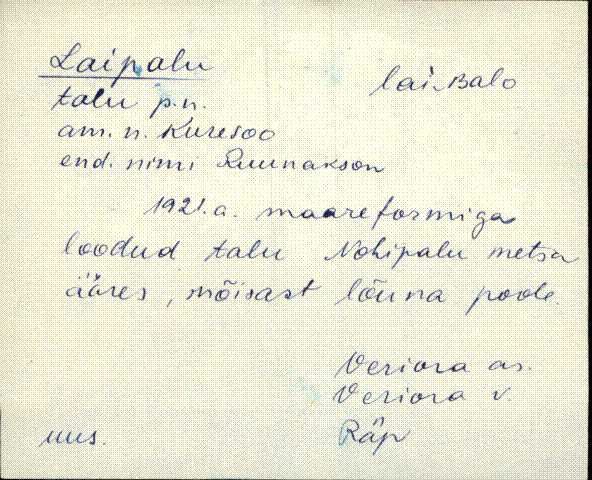 Laipalu
lai.Balo
talu p.n.
am. n. Kuresoo
end. nimi Ruunakson
1921.a. maareformiga
loodud talu Nohipalu metsa
ääres, mõisast lõuna poole.
Veriora as.
Veriora v.
Räp
uus.